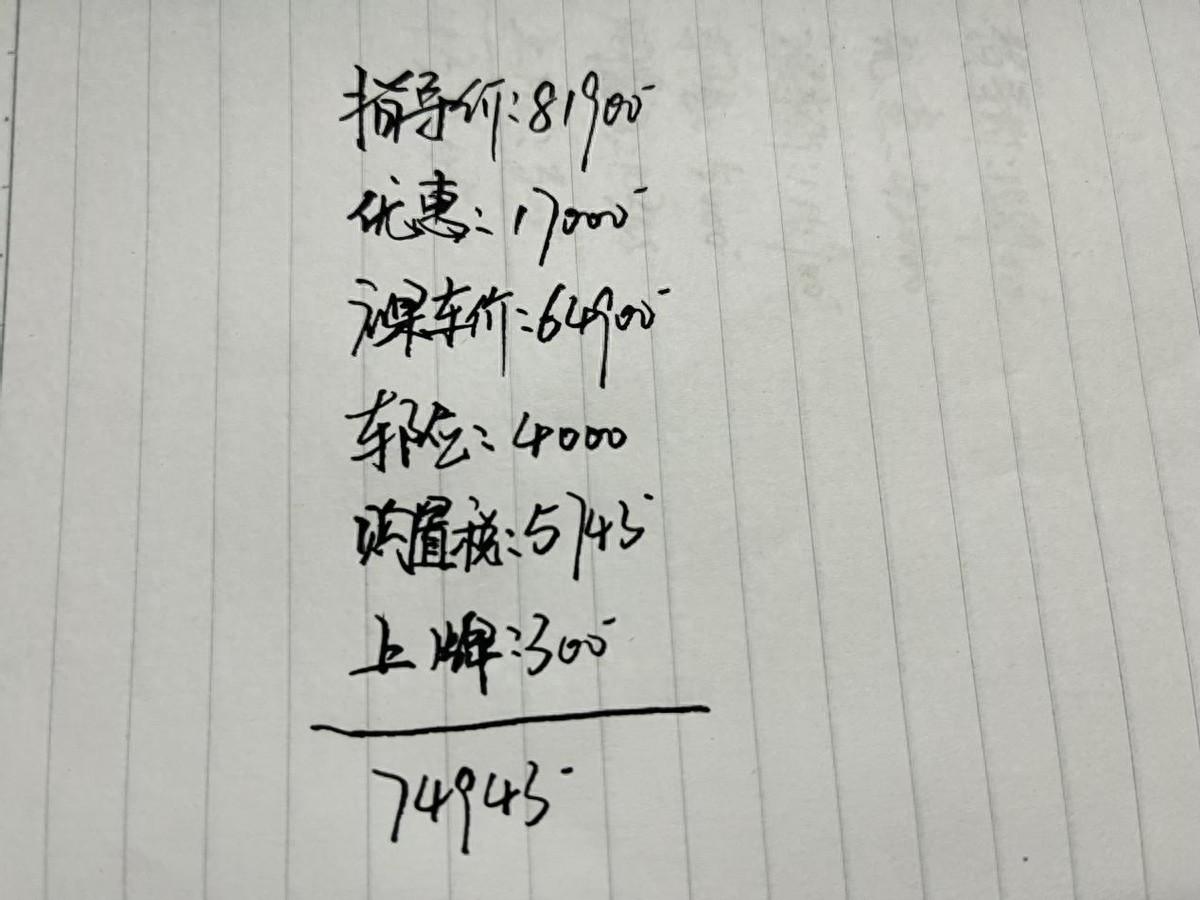 指导价:81900
优惠:17000
裸车价:64900
车险:4000
购置税:5743
上牌:300
74943